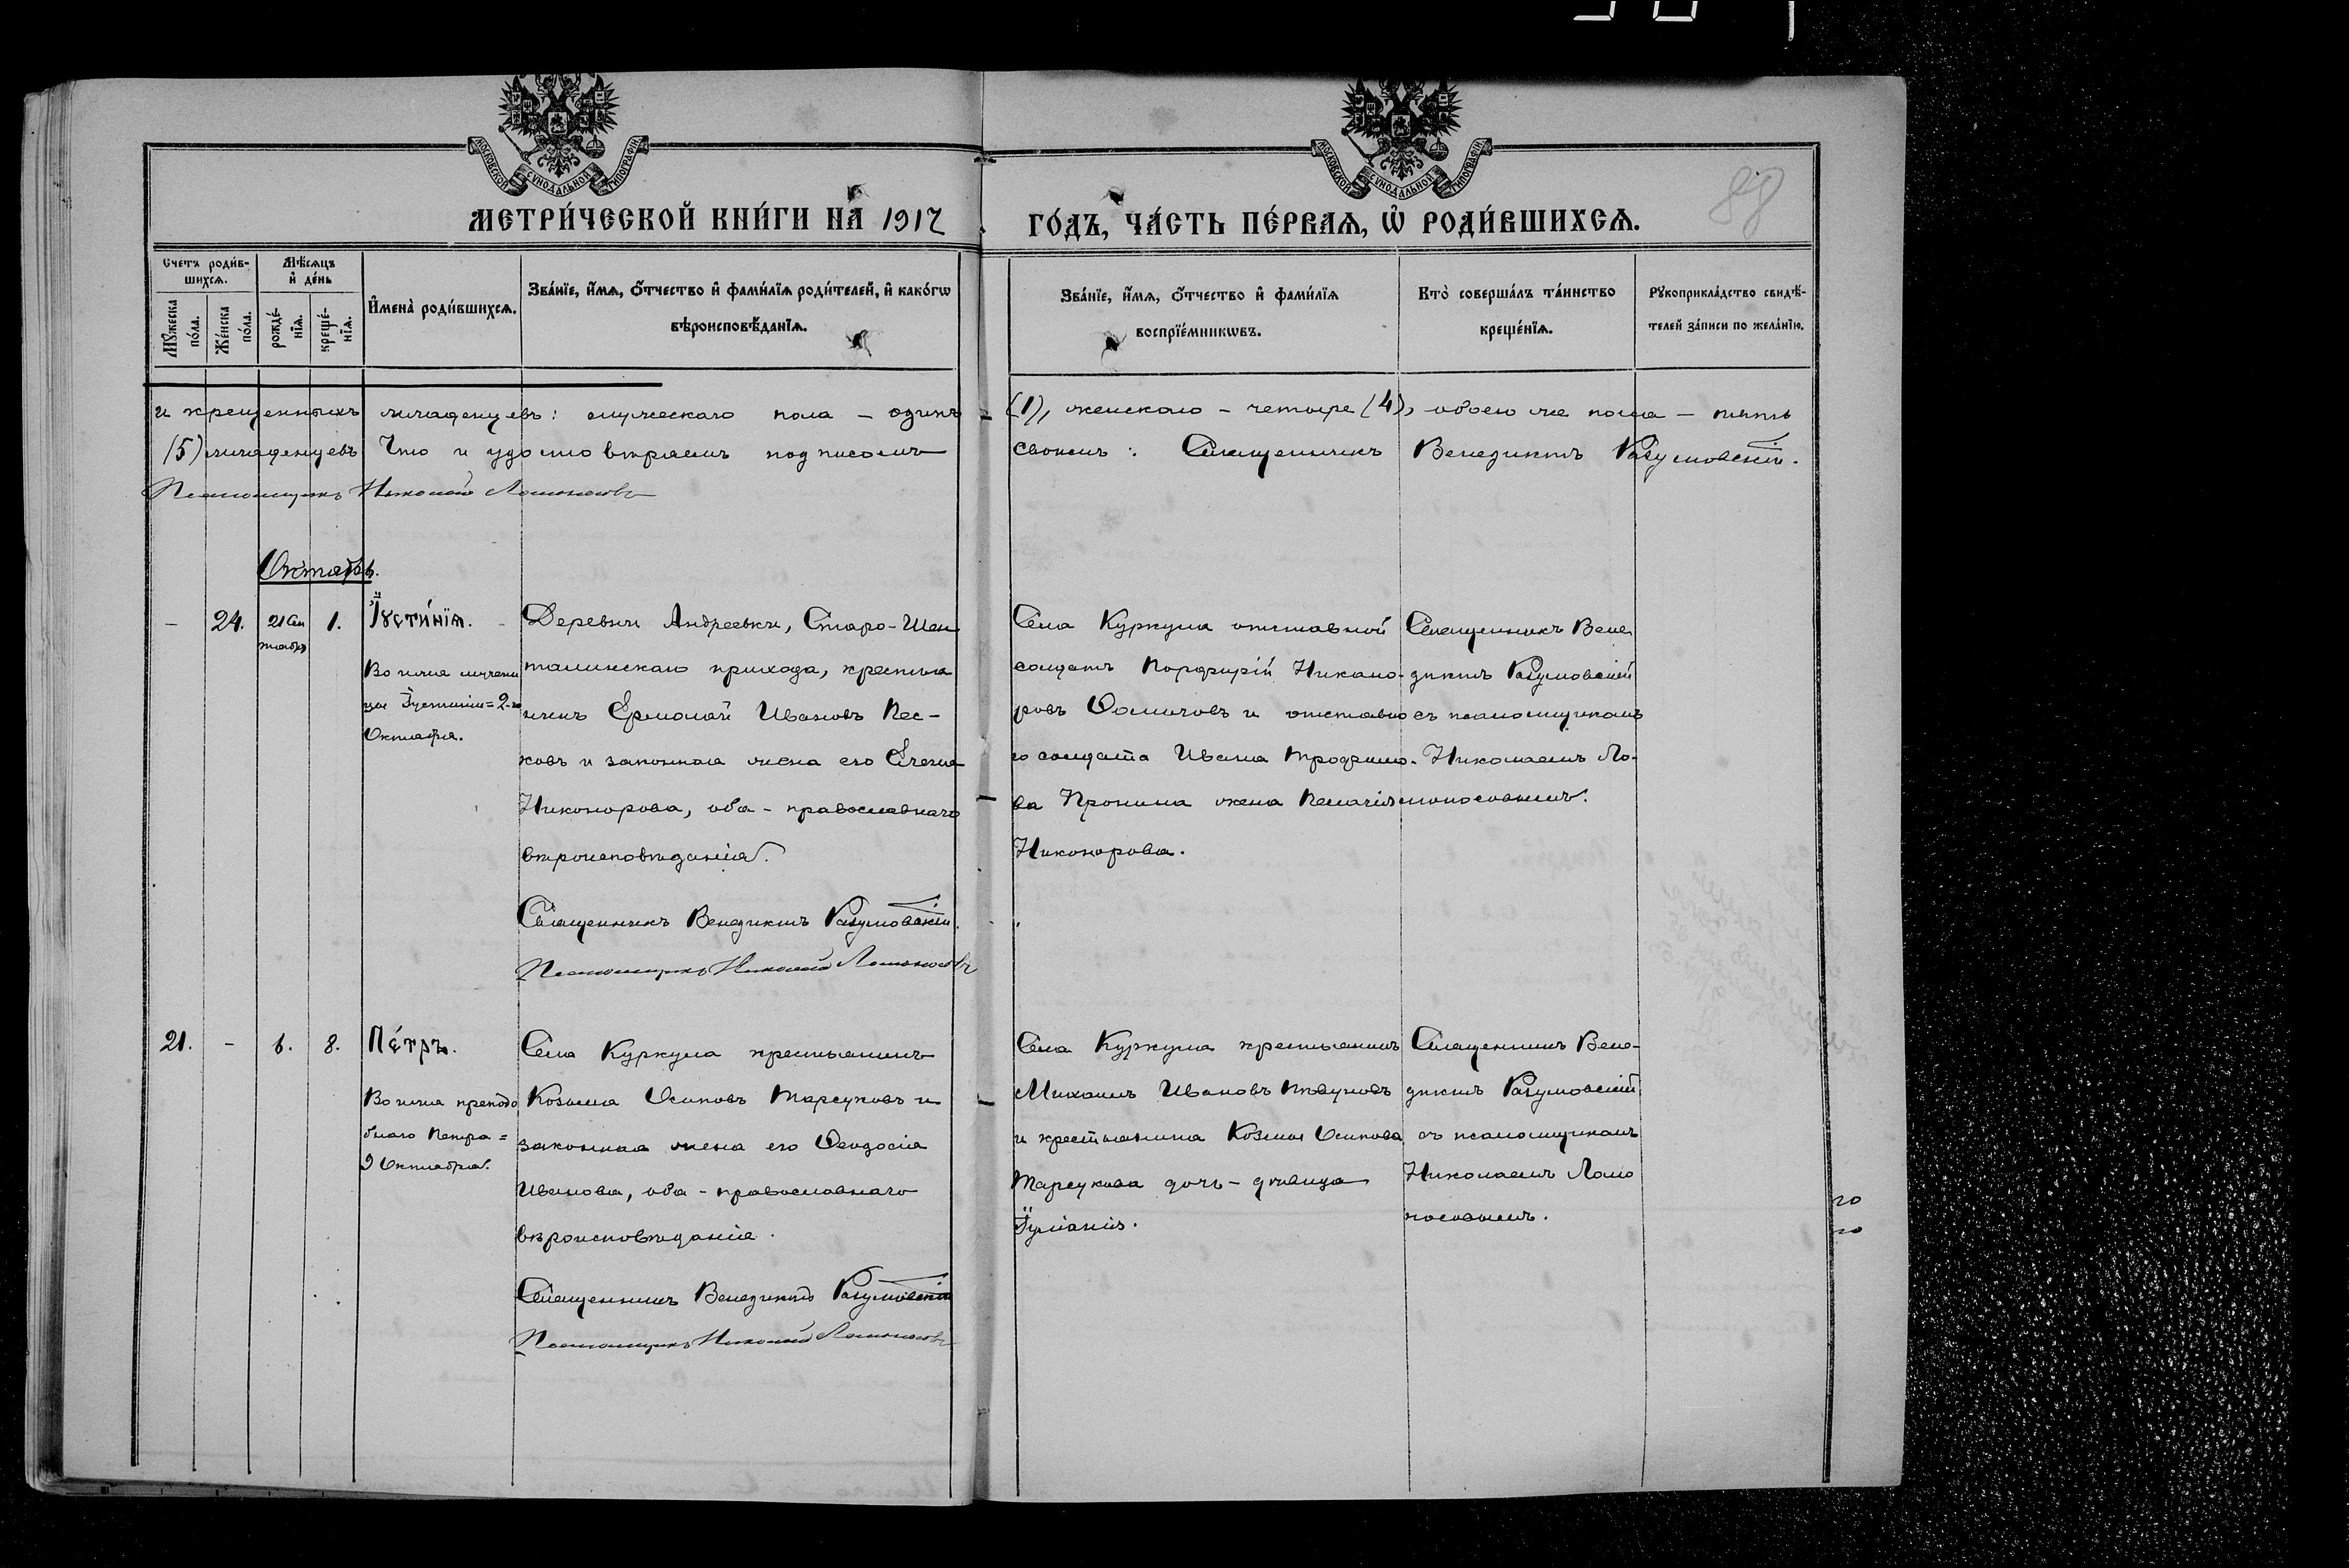 МОСКОВСКОЙ СѴНОДАЛЬНОЙ ТИПОГРАФІИ
МОСКОВСКОЙ СѴНОДАЛЬНОЙ ТИПОГРАФІИ
МЕТРИ́ЧЕСКОЙ КНИ́ГИ НА 1917 ГО́ДЪ, ЧА́СТЬ ПЕ́РВАѦ, Ѡ҆ РОДИ́ВШИХСѦ.
88
Счетъ роди́в-
шихсѧ.
Мꙋ́жеска по́ла.
Же́нска по́ла.
Мѣ́сѧцъ
и҆ де́нь
рожде́-
нїѧ.
креще́-
нїѧ.
И҆мена̀ роди́вшихсѧ.
Зва́нїе, и҆́мѧ, ѻ҆́тчество и҆ фами́лїѧ роди́телей, и҆ како́гѡ
вѣроисповѣ́данїѧ.
Зва́нїе, и҆́мѧ, ѻ҆́тчество и҆ фами́лїѧ
воспрїе́мникѡвъ.
Кто̀ соверша́лъ та́инство
креще́нїѧ.
Рꙋкоприкла́дство свидѣ́-
телей за́писи по жела́нїю.
и крещенныхъ младенцевъ: мужескаго пола – одинъ – (1), женскаго – четыре (4), обоего же пола – пять
(5) младенцевъ Что и удостовѣряемъ подписомъ своимъ: Священникъ Венедиктъ Разумовскій.
Псаломщикъ Николай Ломоносовъ
Октябрь.
– 24. 21 Сен
тября 1.
Іꙋсти́нїѧ.
Во имя мучени
цы Іустиніи = 2-го
Октября.
Деревни Андреевки, Старо-Шен
талинскаго прихода, крестья
нинъ Ермолай Ивановъ Пес-
ковъ и законная жена его Елена
Никонорова, оба – православнаго
вѣроисповѣданія.
Священникъ Венедиктъ Разумовскій.
Псаломщикъ Николай Ломоносовъ
Села Куркула отставной
солдатъ Порфирій Никано-
ровъ Ѳомичовъ и отставно
го солдата Ивана Трофимо-
ва Пронина жена Пелагія
Никонорова.
Священникъ Вене
диктъ Разумовскій
съ псаломщикомъ
Николаемъ Ло-
моносовымъ.
21. – 6. 8.
Пе́тръ.
Во имя преподо
бнаго Петра =
9 Октября.
Села Куркула крестьянинъ
Козьма Осиповъ Тарсуковъ и
законная жена его Ѳеодосія
Иванова, оба – православнаго
вѣроисповѣданія.
Священникъ Венедиктъ Разумовскій
Псаломщикъ Николай Ломоносовъ
Села Куркула крестьянинъ
Михаилъ Ивановъ
и крестьянина Козьмы Осипова
Тарсукова дочь – дѣвица
Іуліанія.
Священникъ Вене-
диктъ Разумовскій
съ псаломщикомъ
Николаемъ Ломо
носовымъ.
го
го